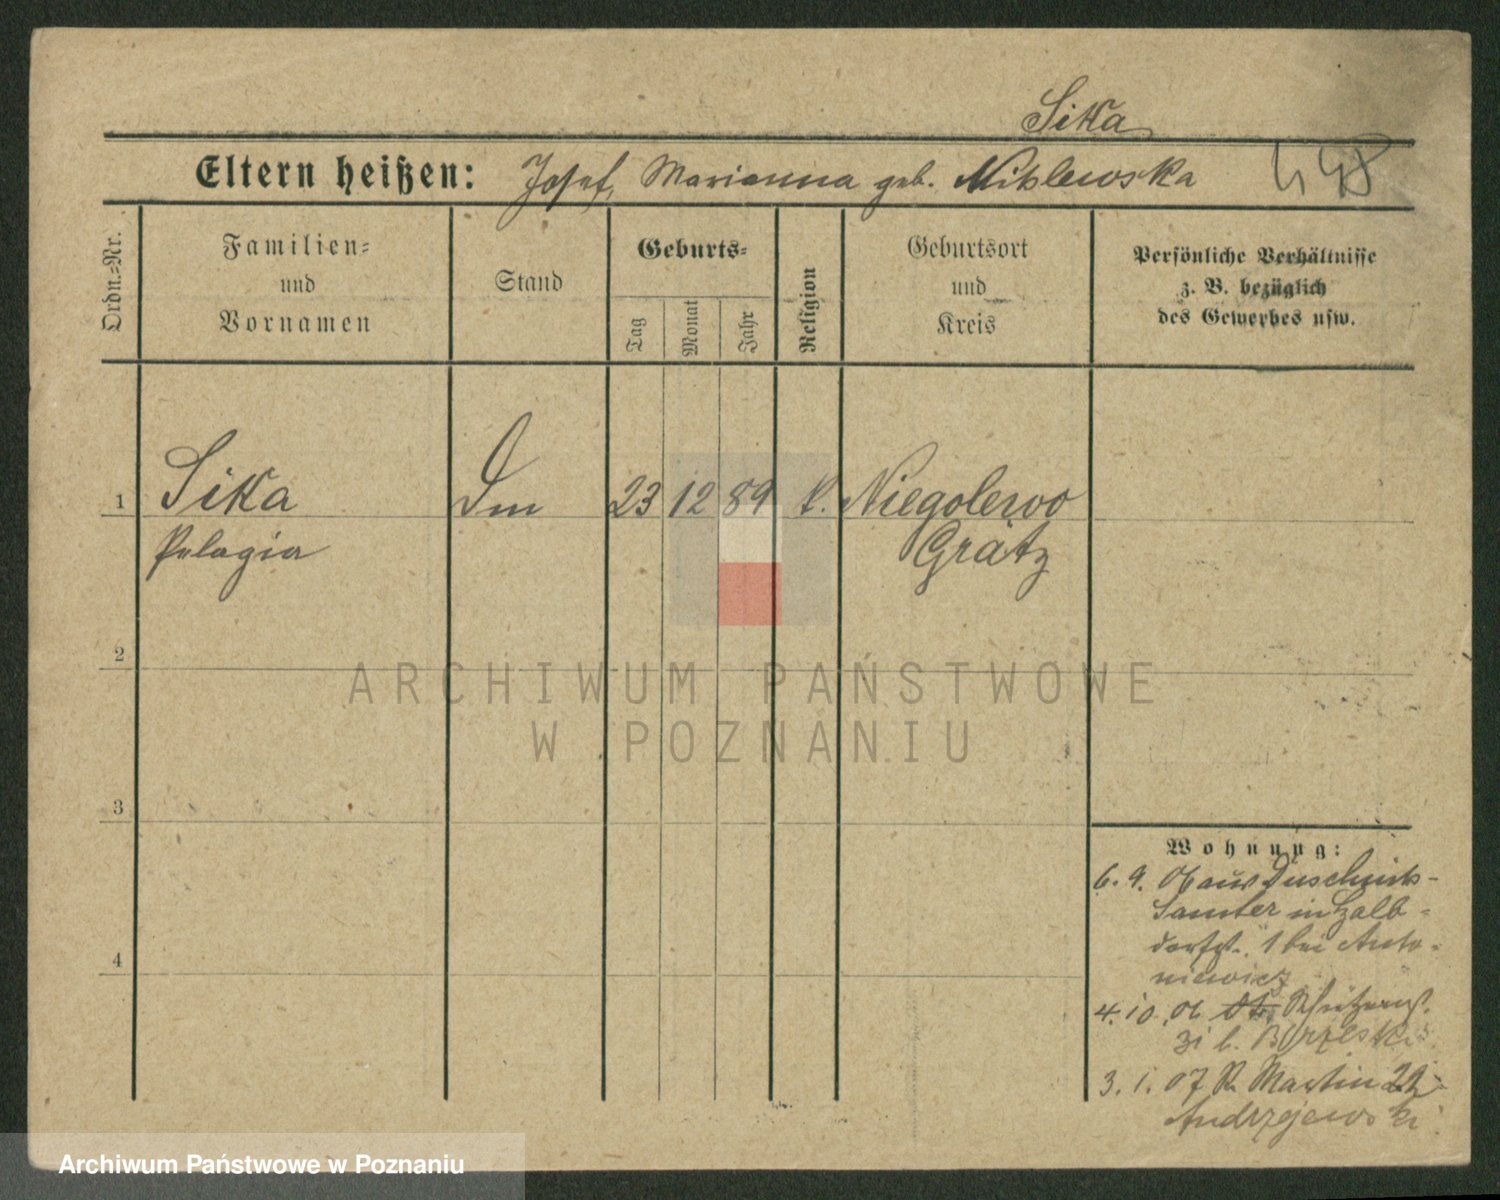 Sika
Eltern heißen: Josef, Marianna geb. Niklewska
448
Ordn.-Nr.
Familien-
und
Vornamen
Stand
Geburts-
Tag
Monat
Jahr
Religion
Geburtsort
und
Kreis
Persönliche Verhältnisse
z. B. bezüglich
des Gewerbes usw.
1 Sika Dm 23 12 89 k. Niegolewo
Pelagia Grätz
2
3
4
Wohnung:
6. 9. 06 aus Duschnik-
Samter in Halb-
dorfst. 1 bei Anto-
niewicz
4. 10. 06 Schützenst.
31 b. Borzeski
3. 1. 07 St. Martin 22
Andrzejewski
ARCHIWUM PAŃSTWOWE
W POZNANIU
Archiwum Państwowe w Poznaniu